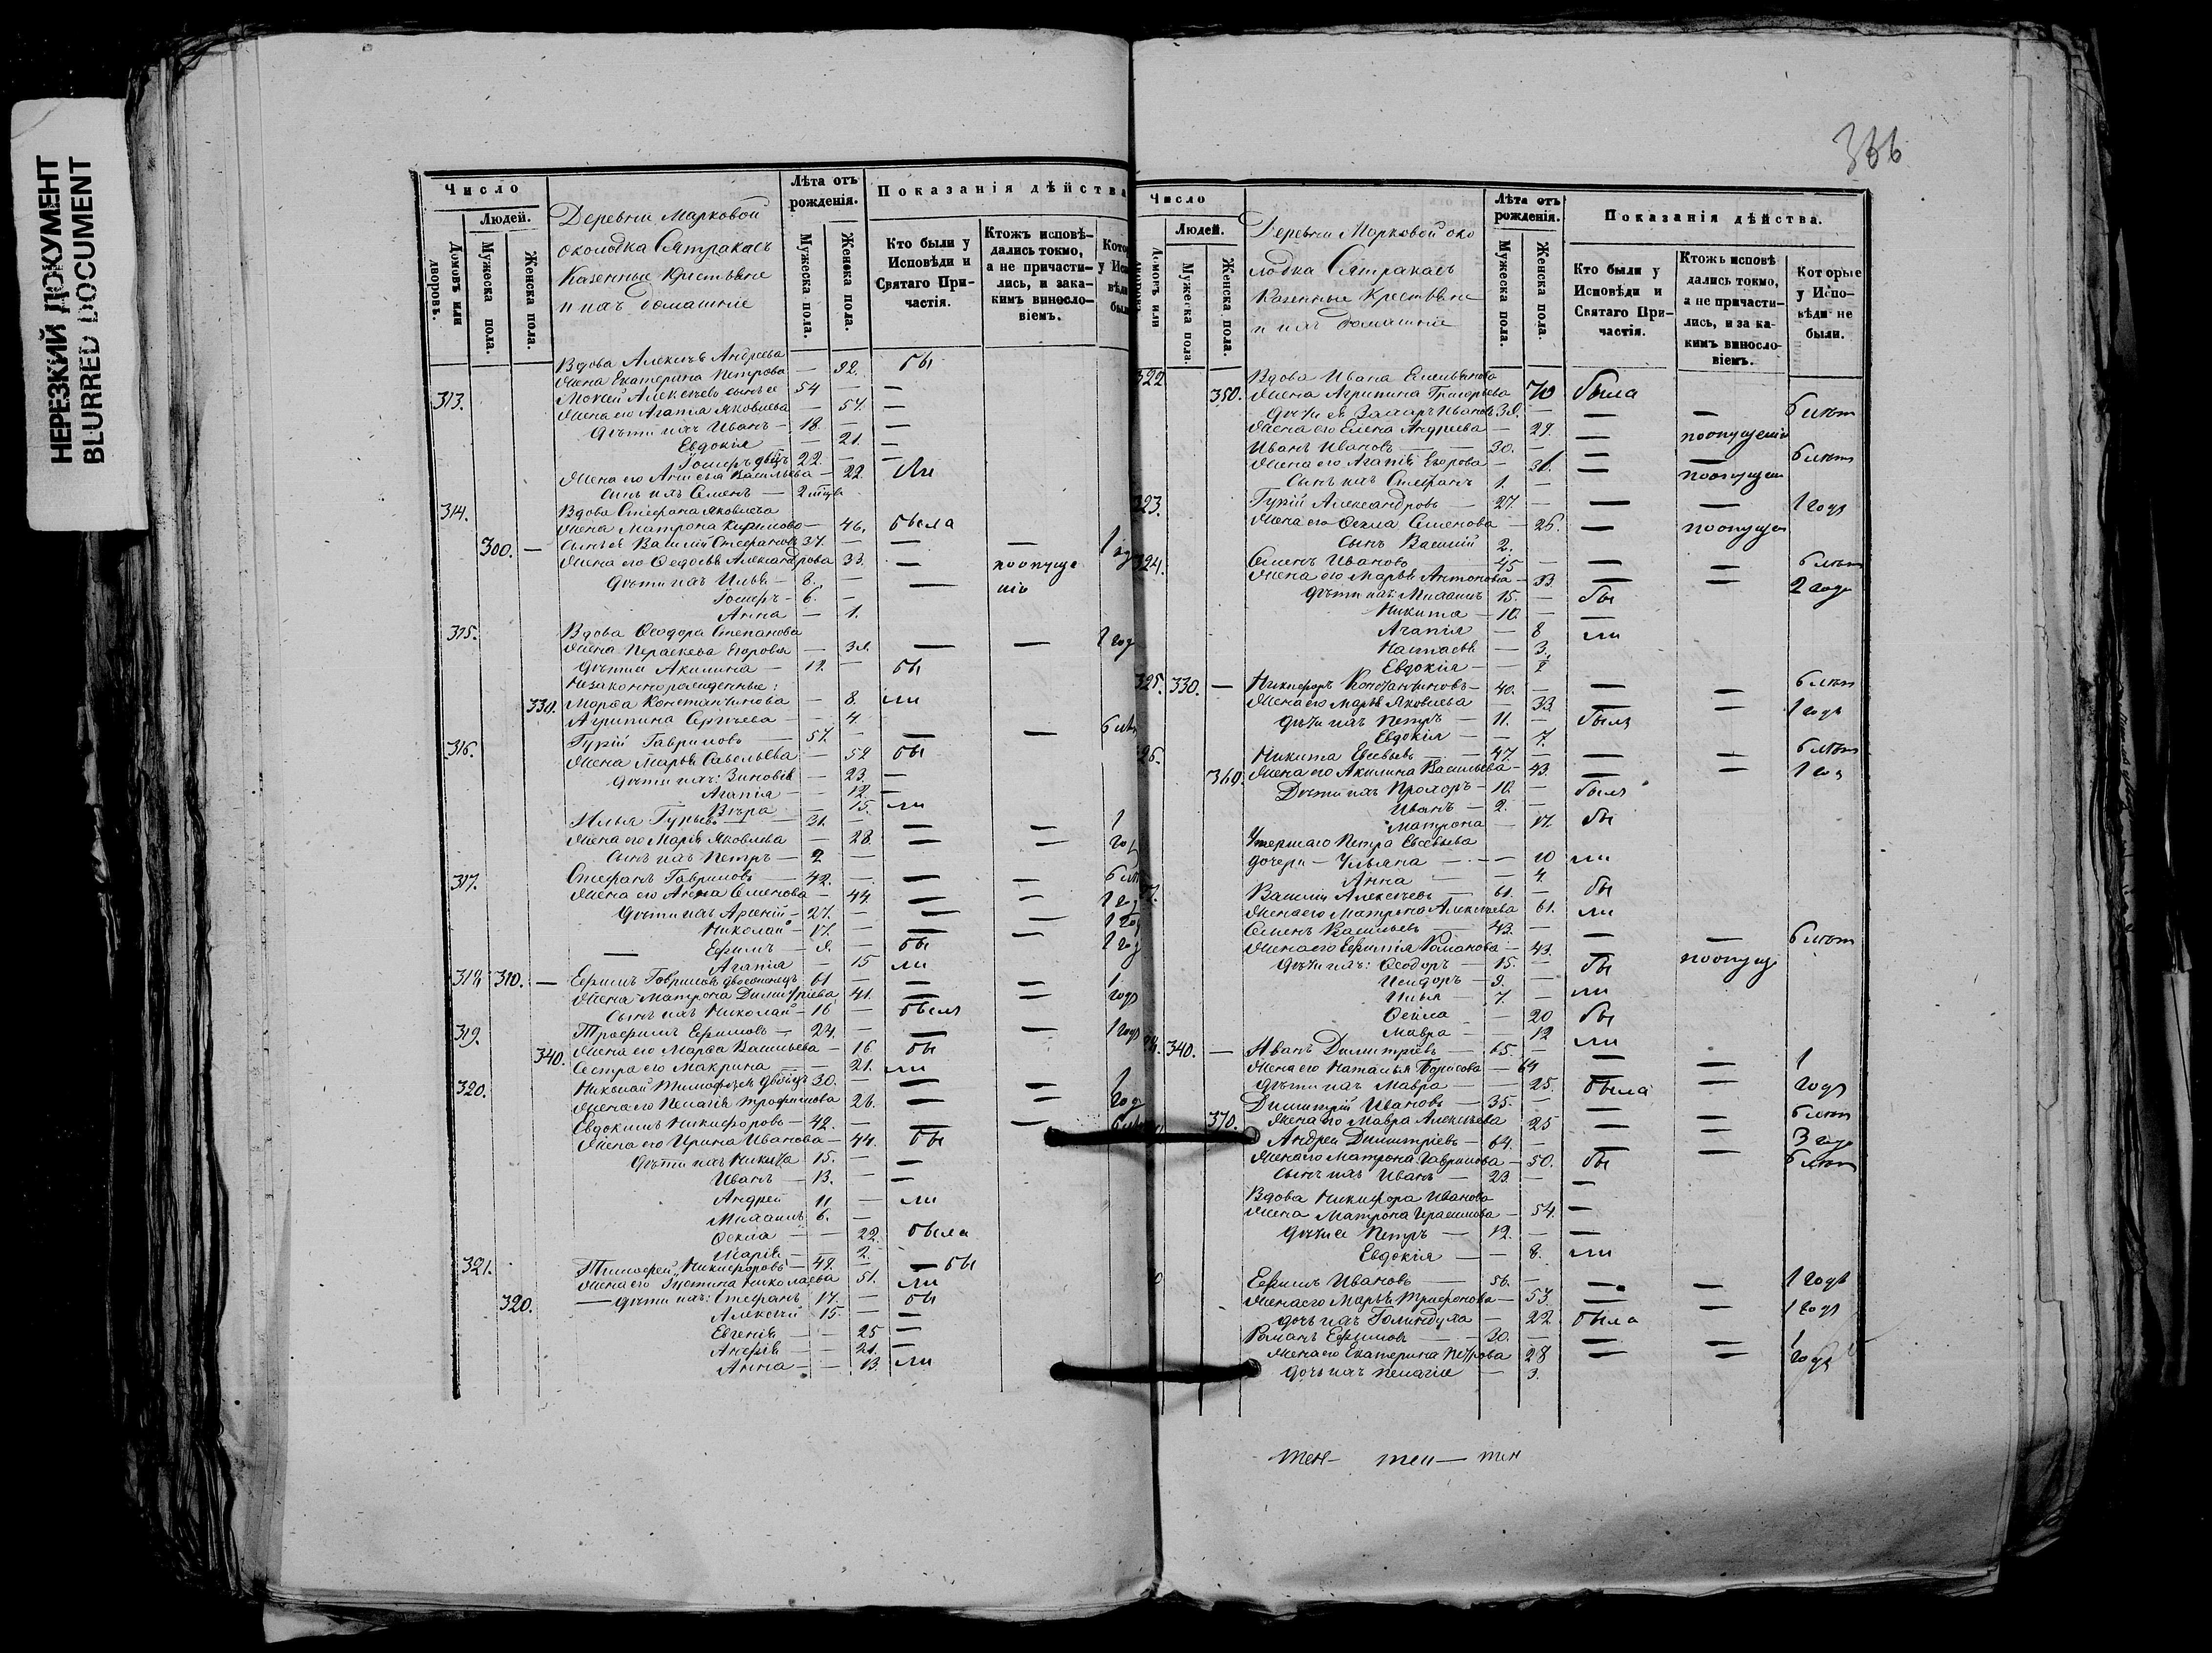 НЕРЕЗКИЙ ДОКУМЕНТ
BLURRED DOCUMENT
Число
Людей.
Домовъ или дворовъ.
Мужеска пола.
Женска пола.
Деревни Марковой
околодка Сятракасъ
Казенные Крестьяне
и ихъ домашніе
Лѣта отъ рожденія.
Мужеска пола.
Женска пола.
Показанія дѣйства
Кто были у Исповѣди и Святаго Причастія.
Ктожъ исповѣдались токмо, а не причастились, и за какимъ винословіемъ.
Вдова Алексѣя Андреева
жена Екатерина Петрова — 92. бы
313. Мокей Алексѣевъ сынъ ея 54 — —
Жена его Агапія Яковлева — 54. —
Дѣти ихъ Иванъ — 18. — —
Евдокія — 21. —
Іосифъ 22. — —
Жена его Анисья Васильева — 22. ли
Сынъ ихъ Семенъ — 2
314. Вдова Стефана Яковлева
жена Матрона Кирилова — 46. была
300. — Сынъ ея Василій Стефановъ 37. — — — 1 год
Жена его Федосья Александрова 33. — по опуще
Дѣти ихъ Илья — 8. — — нію
Іосифъ — 6. —
Анна — 1.
315. Вдова Феодора Степанова
жена Параскева Егорова — 39. — — 1 год
Дѣти Акилина — 12. — бы
Незаконнорожденные:
330. Марѳа Константинова — 8. ли
Агрипина Сергѣева — 4.
316. Гурій Гавриловъ — 57. — — — 6 лѣт
Жена Марья Савельева — 52 бы
Дѣти ихъ: Зиновія — 23. —
Агапія — 12. —
Вѣра — 15. ли
Илья Гурьевъ — 31. — — — 1
Жена его Марія Яковлева — 28. — — год
Сынъ ихъ Петръ — 2 —
317. Стефанъ Гавриловъ — 42. — — — 6 лѣт
Жена его Анна Семенова — 44. — — 1 год
Дѣти ихъ Арсеній — 27. — — — 1 год
Николай — 17. — — — 1 год
Ефимъ — 9. — бы
Агапія — 15 ли
318. 310. — Ефимъ Гавриловъ 61 — — — 1
Жена Матрона Димитріева 41. — — годъ
Сынъ ихъ Николай — 16 — былъ
319. Трофимъ Ефимовъ — 24. — — — 1 годъ
340. Жена его Марѳа Васильева — 16. бы
Сестра его Макрина — 21. ли
320. Николай Тимофѣевъ 30. — — — 1
Жена его Пелагія Трофимова 26. — — годъ
Евдокимъ Никифоровъ — 42. — — — 6 лѣт
Жена его Ирина Иванова — 44. бы
Дѣти ихъ Никита 15. — —
Иванъ — 13. — —
Андрей 11 — ли
Михаилъ 6. —
Ѳекла — 22. была
Марія — 2.
321. Тимофей Никифоровъ — 49. — — бы
Жена его Іустина Николаева 51. ли
320. — Дѣти ихъ: Стефанъ 17. — бы
Алексѣй 15. — —
Евгенія — 25 —
Анфія — 21. —
Анна — 13. ли
336
Число
Людей.
Домовъ или
Мужеска пола.
Женска пола.
Деревни Марковой око
лодка Сятракасъ
Казенные Крестьяне
и ихъ домашніе
Лѣта отъ рожденія.
Мужеска пола.
Женска пола.
Показанія дѣйства.
Кто были у Исповѣди и Святаго Причастія.
Ктожь исповѣдались токмо, а не причастились, и за какимъ винословіемъ.
Которые у Исповѣди не были.
322 Вдова Ивана Емельянова
350. Жена Агрипина Григорьева 70 была
Дѣти ея Захаръ Ивановъ 39. — — — 6 лѣт
Жена его Елена Андреева — 29. — по опущенію
Иванъ Ивановъ — 30. — — — 6 лѣт
Жена его Агапія Егорова — 31. — по опущен
Сынъ ихъ Стефанъ 1. —
323. Гурій Александровъ — 27. — — — 1 годъ
Жена его Ѳекла Семенова — 26. — по опущен
Сынъ Василій 2.
324. Семенъ Ивановъ — 45 — — — 6 лѣт
Жена его Марья Антонова — 33. — — 2 года
Дѣти ихъ Михаилъ 15. — бы
Никита — 10. —
Агапія — 8 ли
Настасья — 3.
Евдокія —
325. 330. — Никифоръ Константиновъ — 40. — — — 6 лѣт
Жена его Марья Яковлева — 33. — — 1 годъ
Дѣти ихъ Петръ — 11. — былъ
Евдокія — 7.
26. Никита Евсевьевъ — 47. — — — 6 лѣт
360. Жена его Акилина Васильева — 43. — — 1 год
Дѣти ихъ Прохоръ — 10. — былъ
Иванъ — 2. —
Матрона — 17. бы
Умершаго Петра Евсевьева
дочери — Ульяна — 10 ли
Анна — 4.
Василій Алексѣевъ — 61. — бы
Жена его Матрона Алексѣева 61. ли
Семенъ Васильевъ — 42. — — — 6 лѣт
Жена его Евфимія Романова — 43. — по опуще
Дѣти ихъ: Ѳеодоръ — 15. — бы
Исидоръ — 9. —
Илья — 7. — ли
Ѳекла — 20 бы
Мавра — 12 ли
340. — Иванъ Димитріевъ — 65. — — — 1
Жена его Наталья Борисова — 64 годъ
Дѣти ихъ Мавра — 25. была
Димитрій Ивановъ — 35. — — — 6 лѣт
370. Жена его Мавра Алексѣева 25 — — 3 года
Андрей Димитріевъ — 64. — — — 6 лѣт
Жена его Матрона Гаврилова — 50. бы
Сынъ ихъ Иванъ — 23. — —
Вдова Никифора Иванова
жена Матрона Герасимова — 54. —
Дѣти ея Петръ — 12. — —
Евдокія — 8. ли
Ефимъ Ивановъ — 56. — — — 1 годъ
Жена его Марья Трифонова — 53. — — 1 годъ
дочь ихъ Голиндуха — 22. была
Романъ Ефимовъ — 30. — — — 1
Жена его Екатерина Петрова 28 — — годъ
дочь ихъ Пелагія — 3.